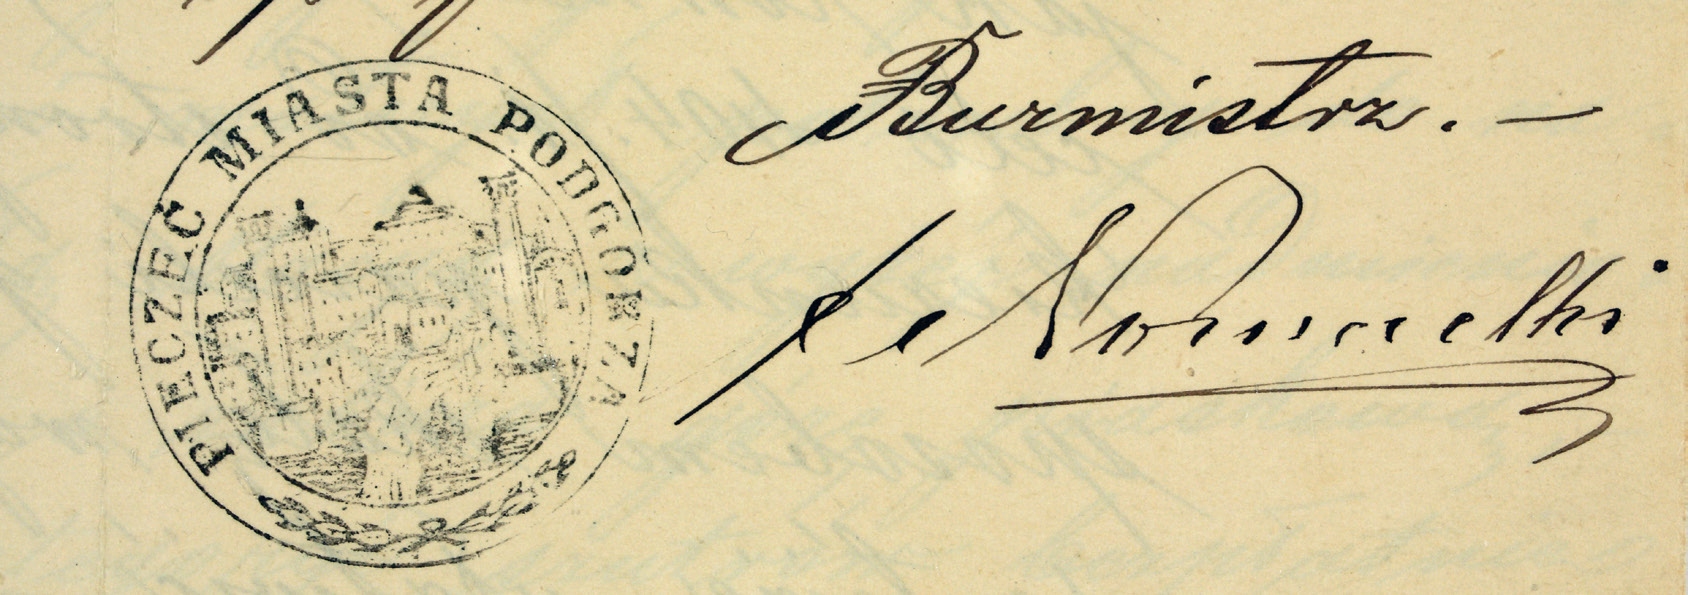 PIECZEĆ MIASTA PODGÓRZA
Burmistrz. —